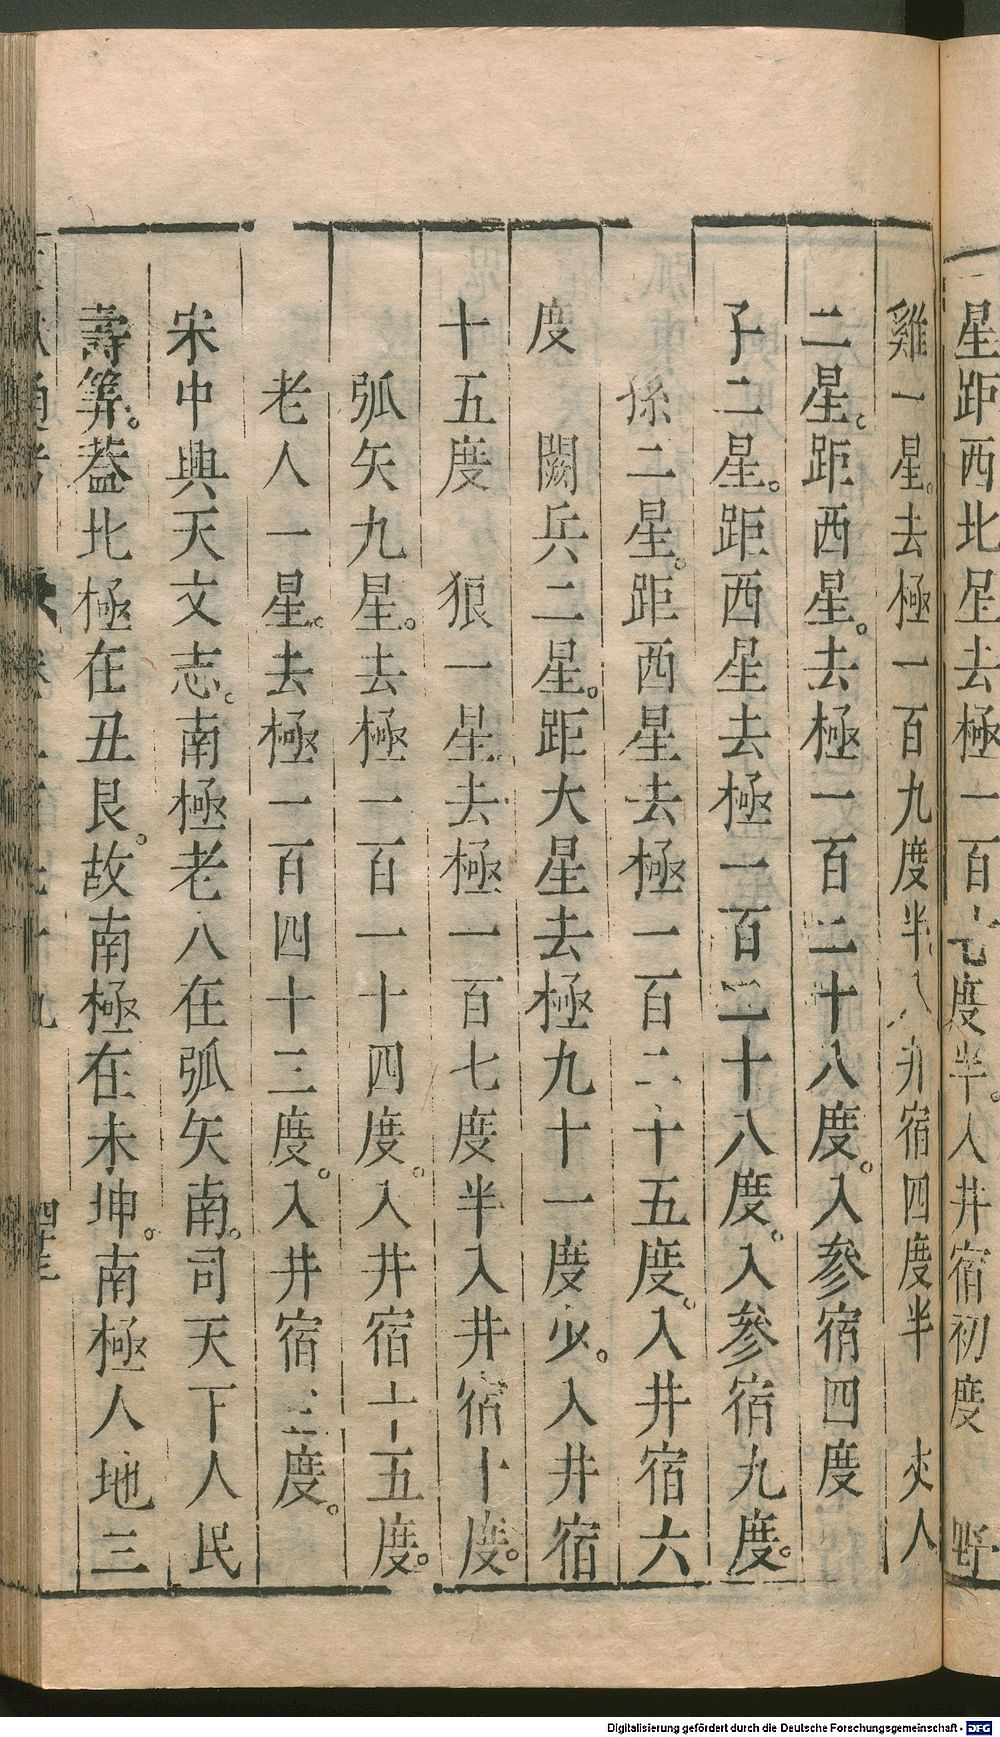 星距西北星去極一百七度半。入井宿初度 野
雞一星。去極一百九度半入井宿四度半 丈人
二星。距西星。去極一百二十八度。入參宿四度
子二星。距西星去極一百二十八度。入參宿九度。
孫二星。距西星去極一百二十五度。入井宿六
度 闕兵二星。距大星去極九十一度少。入井宿
十五度 狼一星去極一百七度半入井宿十度。
弧矢九星。去極一百一十四度。入井宿十五度。
老人一星。去極一百四十三度。入井宿三度。
宋中興天文志。南極老人在弧矢南。司天下人民
壽筭。葢北極在丑艮。故南極在未坤。南極人地三
Digitalisierung gefördert durch die Deutsche Forschungsgemeinschaft - DFG